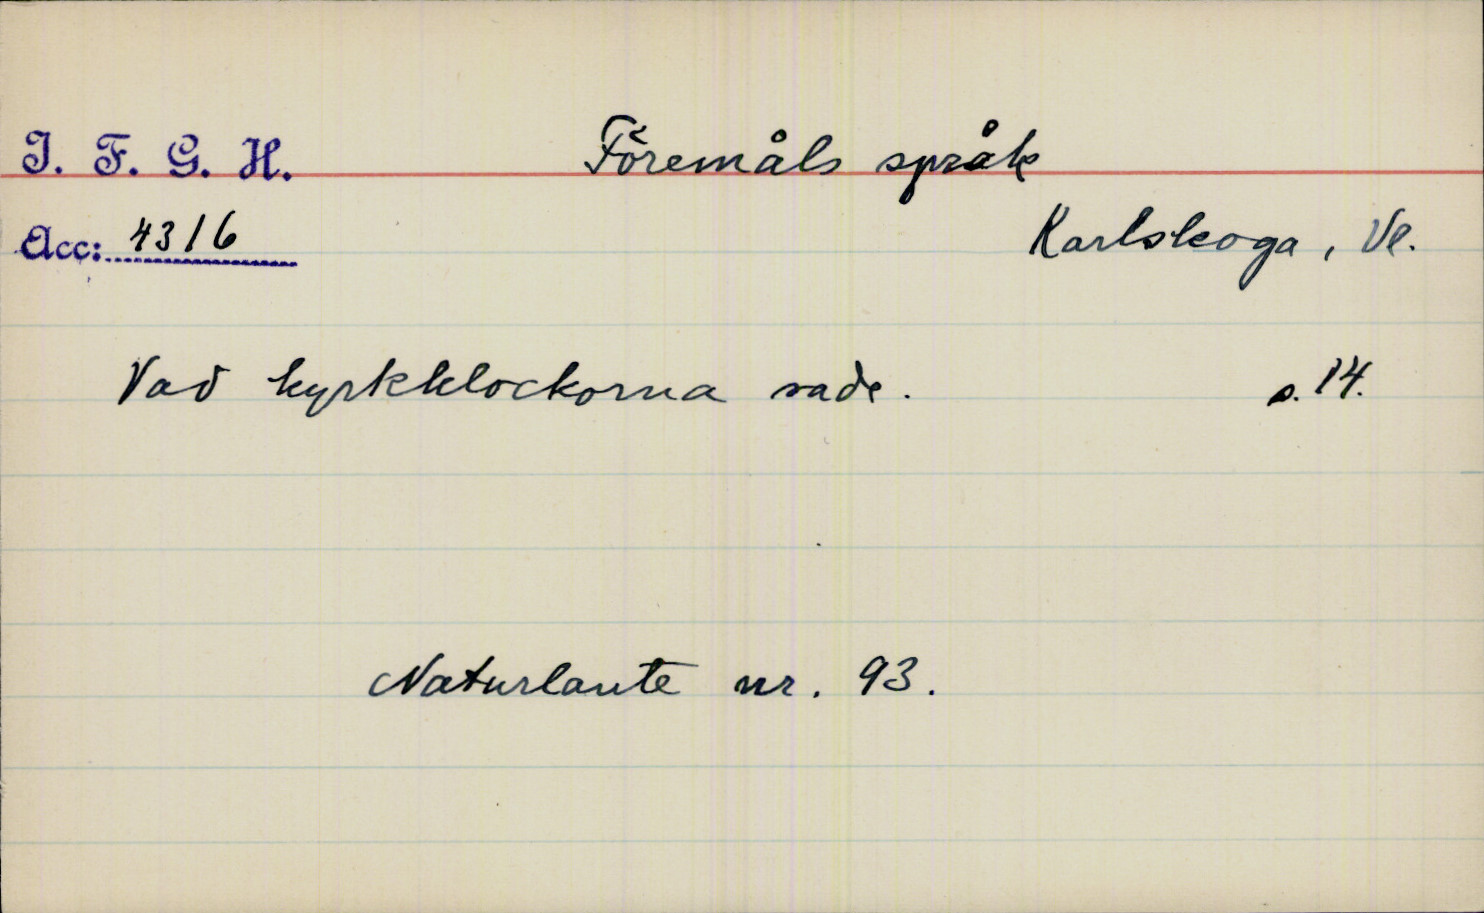 I. F. G. H. Föremåls språk
Acc: 4316 Karlskoga, Vl.
Vad kyrkklockorna sade. s. 14.
Naturlaute nr. 93.